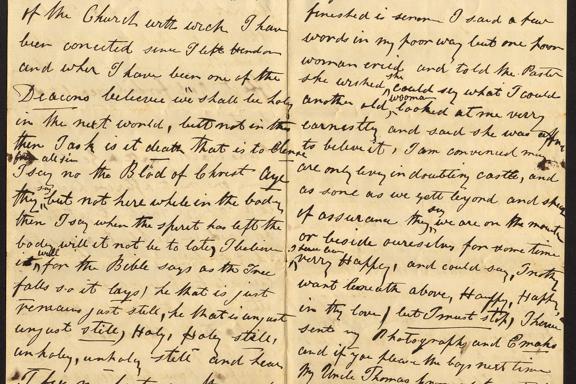 of the Church with wich I have
been conected sinc I left London
and wher I have been one of the
Deacons believe we shall be holy
in the next world, butt not in this
then I ask is it death that is to Clense
from all sin
I say no the Blod of Christ aye
they say but not here while in the body
then I say when the spirit has left the
body will it not be to late, I believe
it will for the Bible says as the Tree
falls so it lays, he that is just
remains just still, he that is unjust
unjust still, Holy, Holy still,
unholy, unholy still and hear
finished is sermon I said a few
words in my poor way but one poor
woman cried and told the Pastor
she wished she could say what I could
another old wooman looked at me verry
earnestly and said she was affraid
to believe it, I am convinced many
are only living in doubting castle, and
as sone as we gett beyond and
of assurance they say we are on the mount
or beside ourselvs for some time
I have been verry Happey, and could say, I noth
want beneath above, Happy, Happy,
in thy love, but I must stop, I have
sent my Photography and Emmas
and if you please the boys next time
My Uncle Thomas